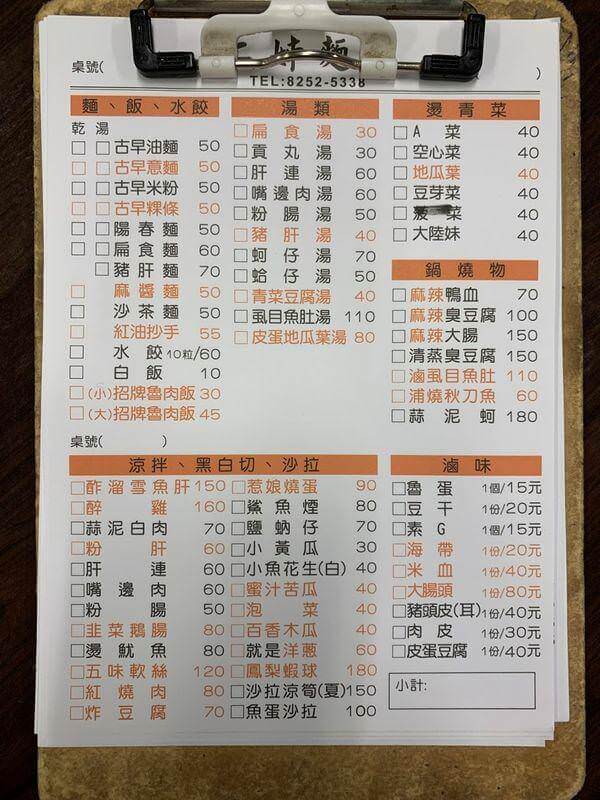 麵
TEL:8252-5338
桌號( )
麵、飯、水餃
乾 湯
古早油麵 50
古早意麵 50
古早米粉 50
古早粿條 50
陽春麵 50
扁食麵 60
豬肝麵 70
麻醬麵 50
沙茶麵 50
紅油抄手 55
水餃10粒/60
白飯 10
(小)招牌魯肉飯 30
(大)招牌魯肉飯 45
湯類
扁食湯 30
貢丸湯 30
肝連湯 60
嘴邊肉湯 60
粉腸湯 50
豬肝湯 40
蚵仔湯 70
蛤仔湯 50
青菜豆腐湯 40
虱目魚肚湯 110
皮蛋地瓜葉湯 80
燙青菜
A菜 40
空心菜 40
地瓜葉 40
豆芽菜 40
菠菜 40
大陸妹 40
鍋燒物
麻辣鴨血 70
麻辣臭豆腐 100
麻辣大腸 150
清蒸臭豆腐 150
滷虱目魚肚 110
浦燒秋刀魚 60
蒜泥蚵 180
桌號( )
涼拌、黑白切、沙拉
酢溜雪魚肝 150
醉雞 160
蒜泥白肉 70
粉肝 60
肝連 60
嘴邊肉 60
粉腸 50
韭菜鵝腸 80
燙魷魚 80
五味軟絲 120
紅燒肉 80
炸豆腐 70
惹娘燒蛋 90
鯊魚煙 80
鹽蚋仔 70
小黃瓜 30
小魚花生(白) 40
蜜汁苦瓜 40
泡菜 40
百香木瓜 40
就是洋蔥 60
鳳梨蝦球 180
沙拉涼筍(夏)150
魚蛋沙拉 100
滷味
魯蛋 1個/15元
豆干 1份/20元
素G 1份/15元
海帶 1份/20元
米血 1份/40元
大腸頭 1份/80元
豬頭皮(耳)1份/40元
肉皮 1份/30元
皮蛋豆腐 1份/40元
小計: